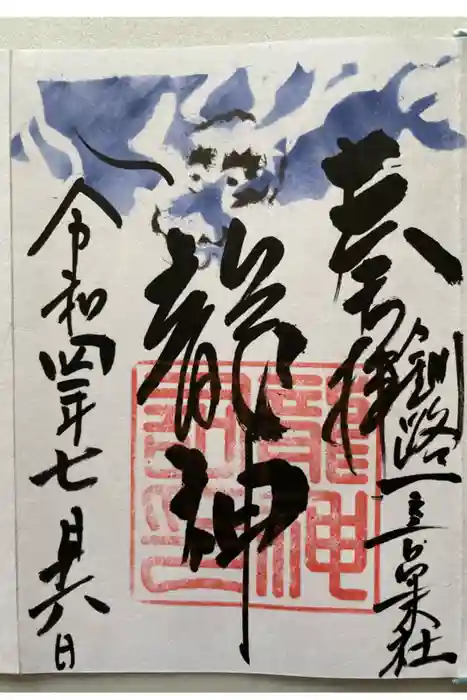 奉拝
釧路一
社
龍神
令和四年七月廿六日
龍神